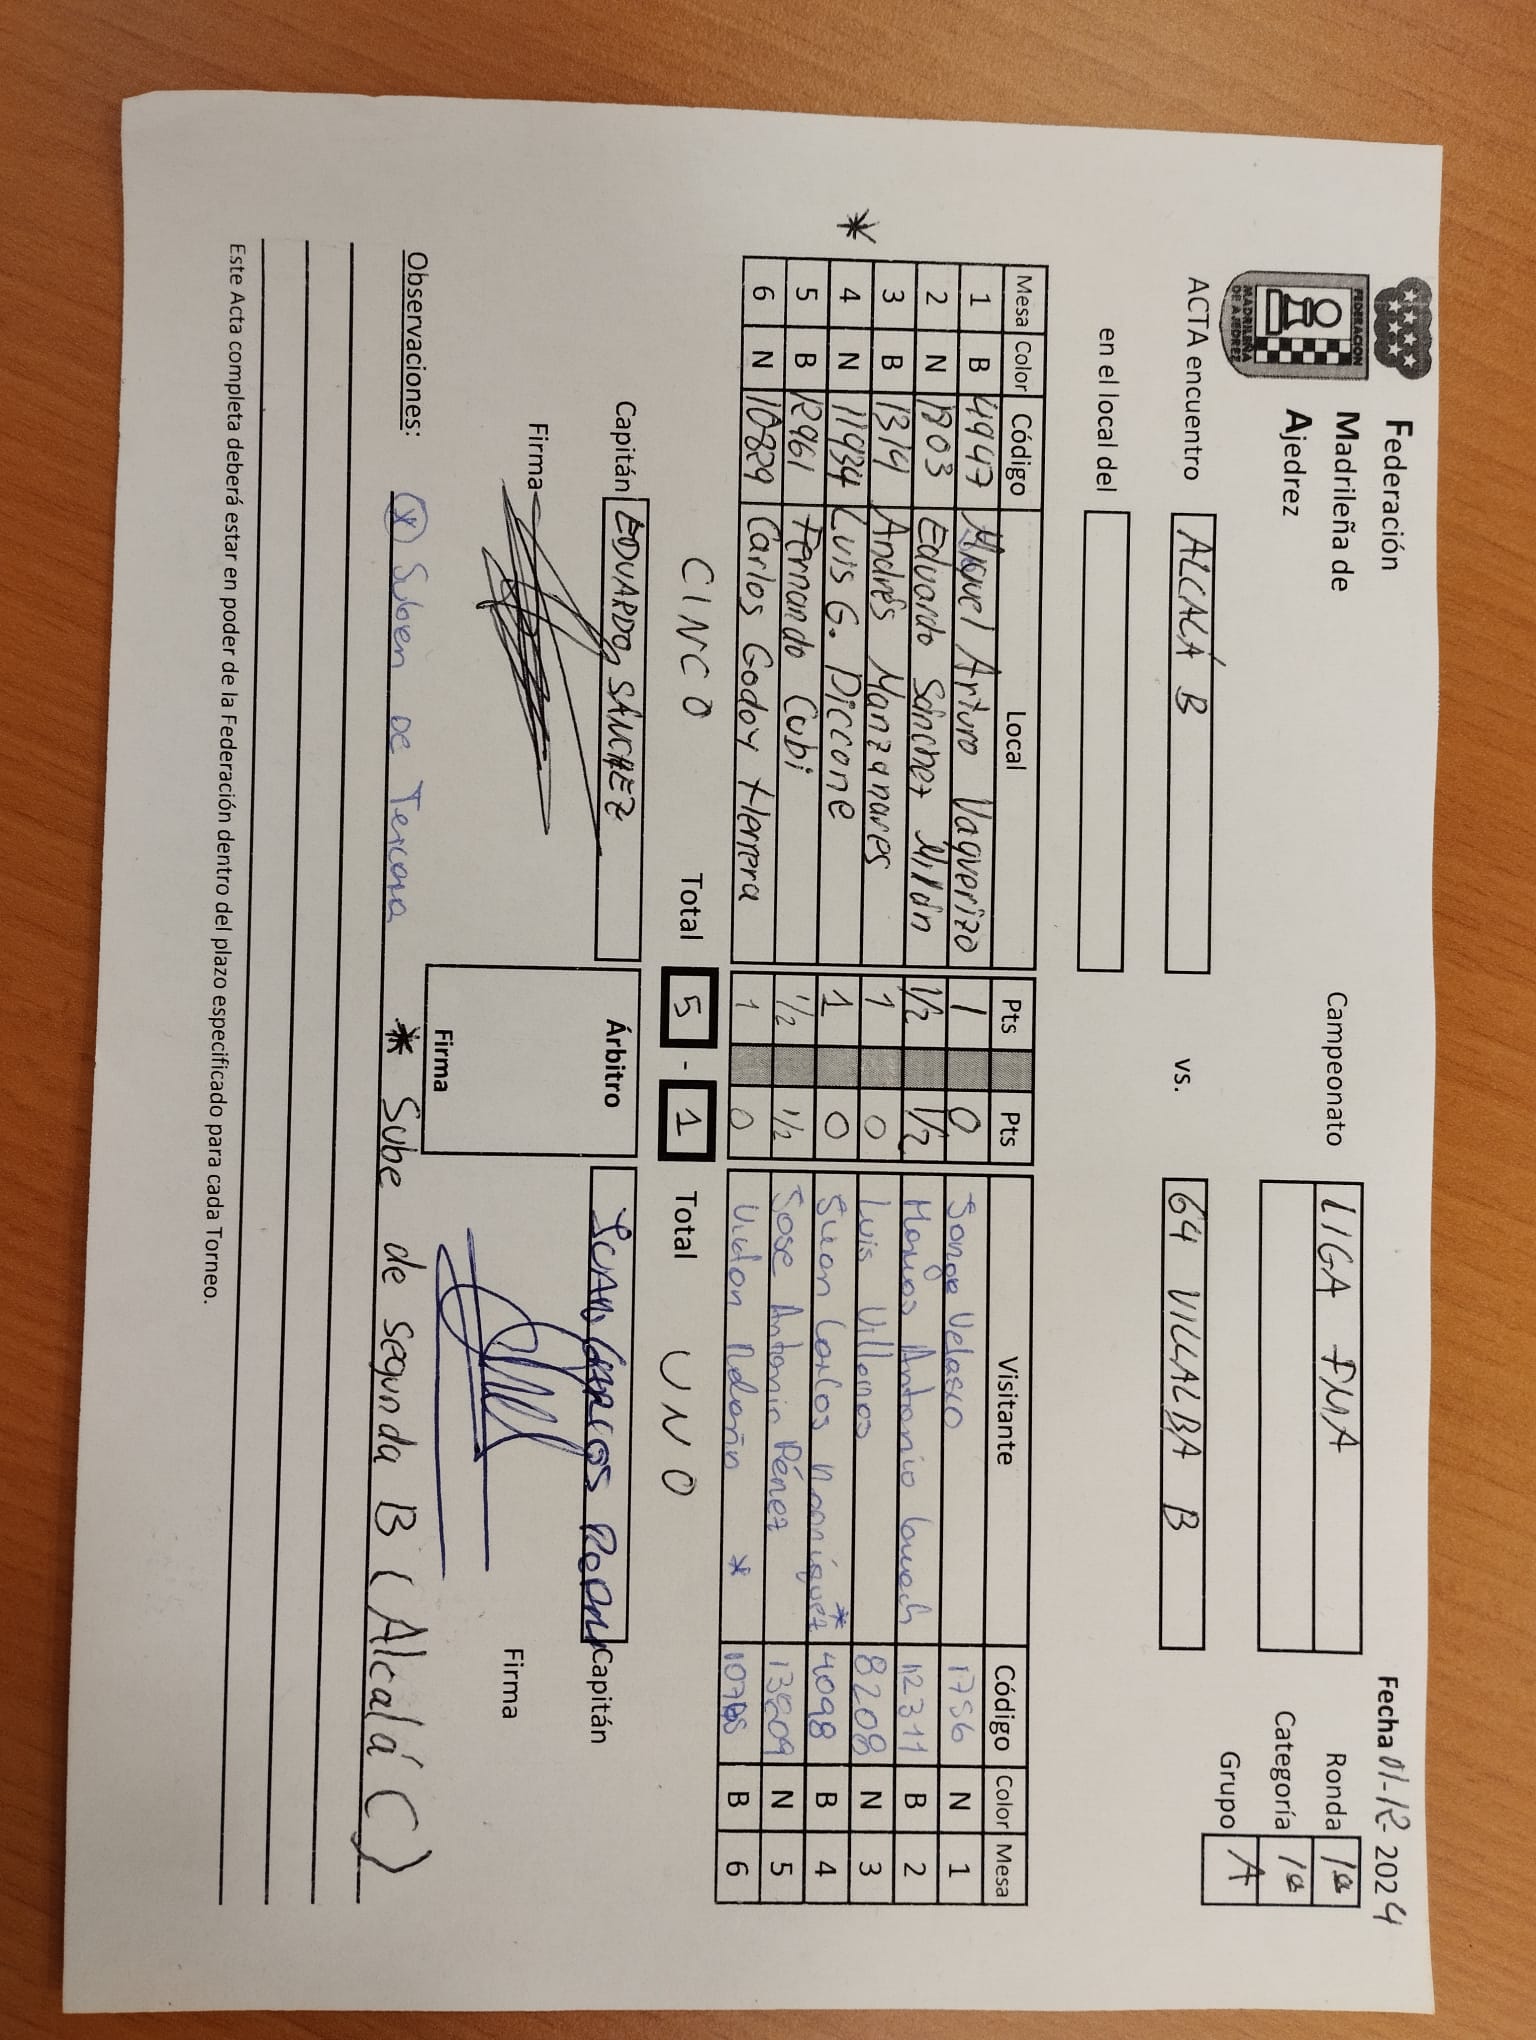 Federación
Madrileña de
Ajedrez
FEDERACION
MADRILEÑA
DE AJEDREZ
Fecha 01-12-2024
Campeonato LIGA FMA Ronda 1ª
Categoría 1ª
Grupo A
ACTA encuentro ALCALÁ B vs. 64 VILLALBA B
en el local del
Mesa Color Código Local Pts Pts Visitante Código Color Mesa
1 B 4947 Miguel Arturo Vaquerizo 1 0 Jorge Velasco 1756 N 1
2 N 1803 Eduardo Sánchez Millán 1/2 1/2 Marcos Antonio 12311 B 2
3 B 1314 Andrés Manzanares 1 0 Luis 8208 N 3
* 4 N 11934 Luis G. Piccone 1 0 Juan Carlos * 4098 B 4
5 B 12961 Fernando Cubi 1/2 1/2 Jose Antonio Pérez 13809 N 5
6 N 10829 Carlos Godoy Herrera 1 0 * B 6
CINCO Total 5 - 1 Total UNO
Capitán EDUARDO SÁNCHEZ Árbitro JUAN CARLOS Capitán
Firma Firma Firma
Observaciones: (*) Suben DE Tercera * Sube de segunda B (Alcalá C)
Este Acta completa deberá estar en poder de la Federación dentro del plazo especificado para cada Torneo.